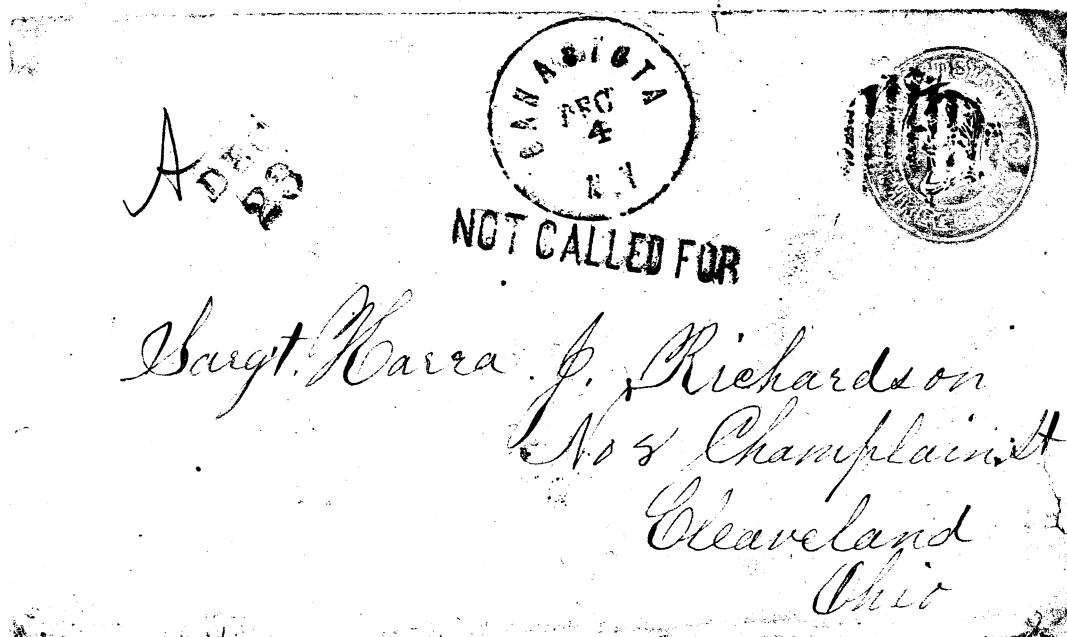 CANASTOTA
DEC
4
N.Y
A
DEC
23
NOT CALLED FOR
Sargt. Harra J. Richardson
No 8 Champlain St
Cleaveland
Ohio